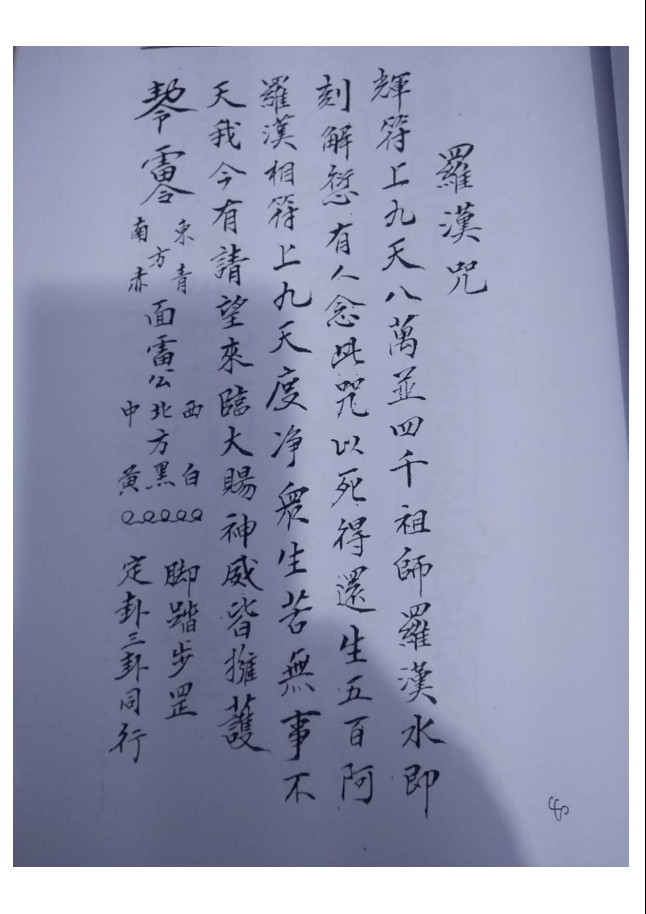 羅漢咒
輝符上九天八萬並四千祖師羅漢水即
刻解愆有人念此咒以死得還生五百阿
羅漢相符上九天度净衆生苦無事不
天我今有請望來臨大賜神威皆擁護
東青
南方赤
面雷公
西白
北方黑
中黃
脚踏步罡
定卦三卦同行